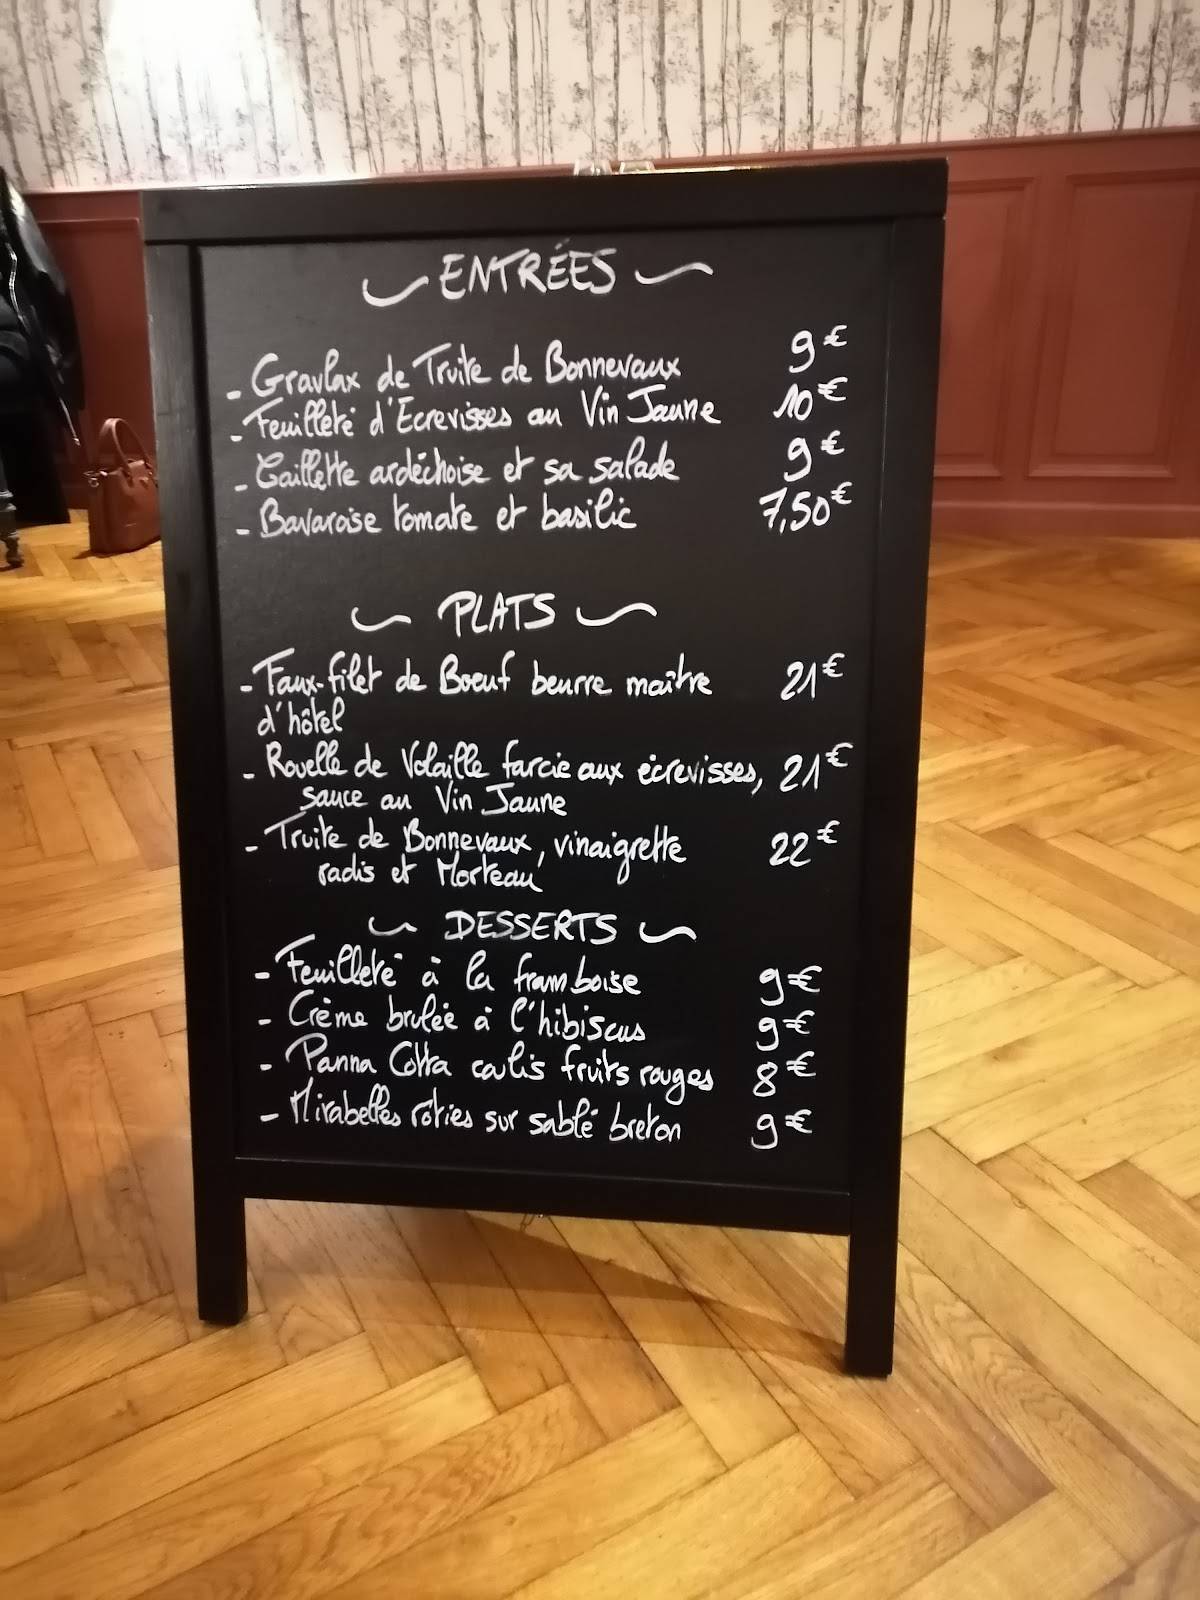 ENTRÉES
- Gravlax de Truite de Bonnevaux 9€
- Feuilleté d'Ecrevisses au Vin Jaune 10€
- Caillette ardéchoise et sa salade 9€
- Bavaroise tomate et basilic 7,50€
PLATS
- Faux-filet de Boeuf beurre maître 21€
d'hôtel
- Rouelle de Volaille farcie aux écrevisses, 21€
sauce au Vin Jaune
- Truite de Bonnevaux, vinaigrette 22€
radis et Morteau
DESSERTS
- Feuilleté à la framboise 9€
- Crème brulée à l'hibiscus 9€
- Panna Cotta coulis fruits rouges 8€
- Mirabelles rôties sur sablé breton 9€